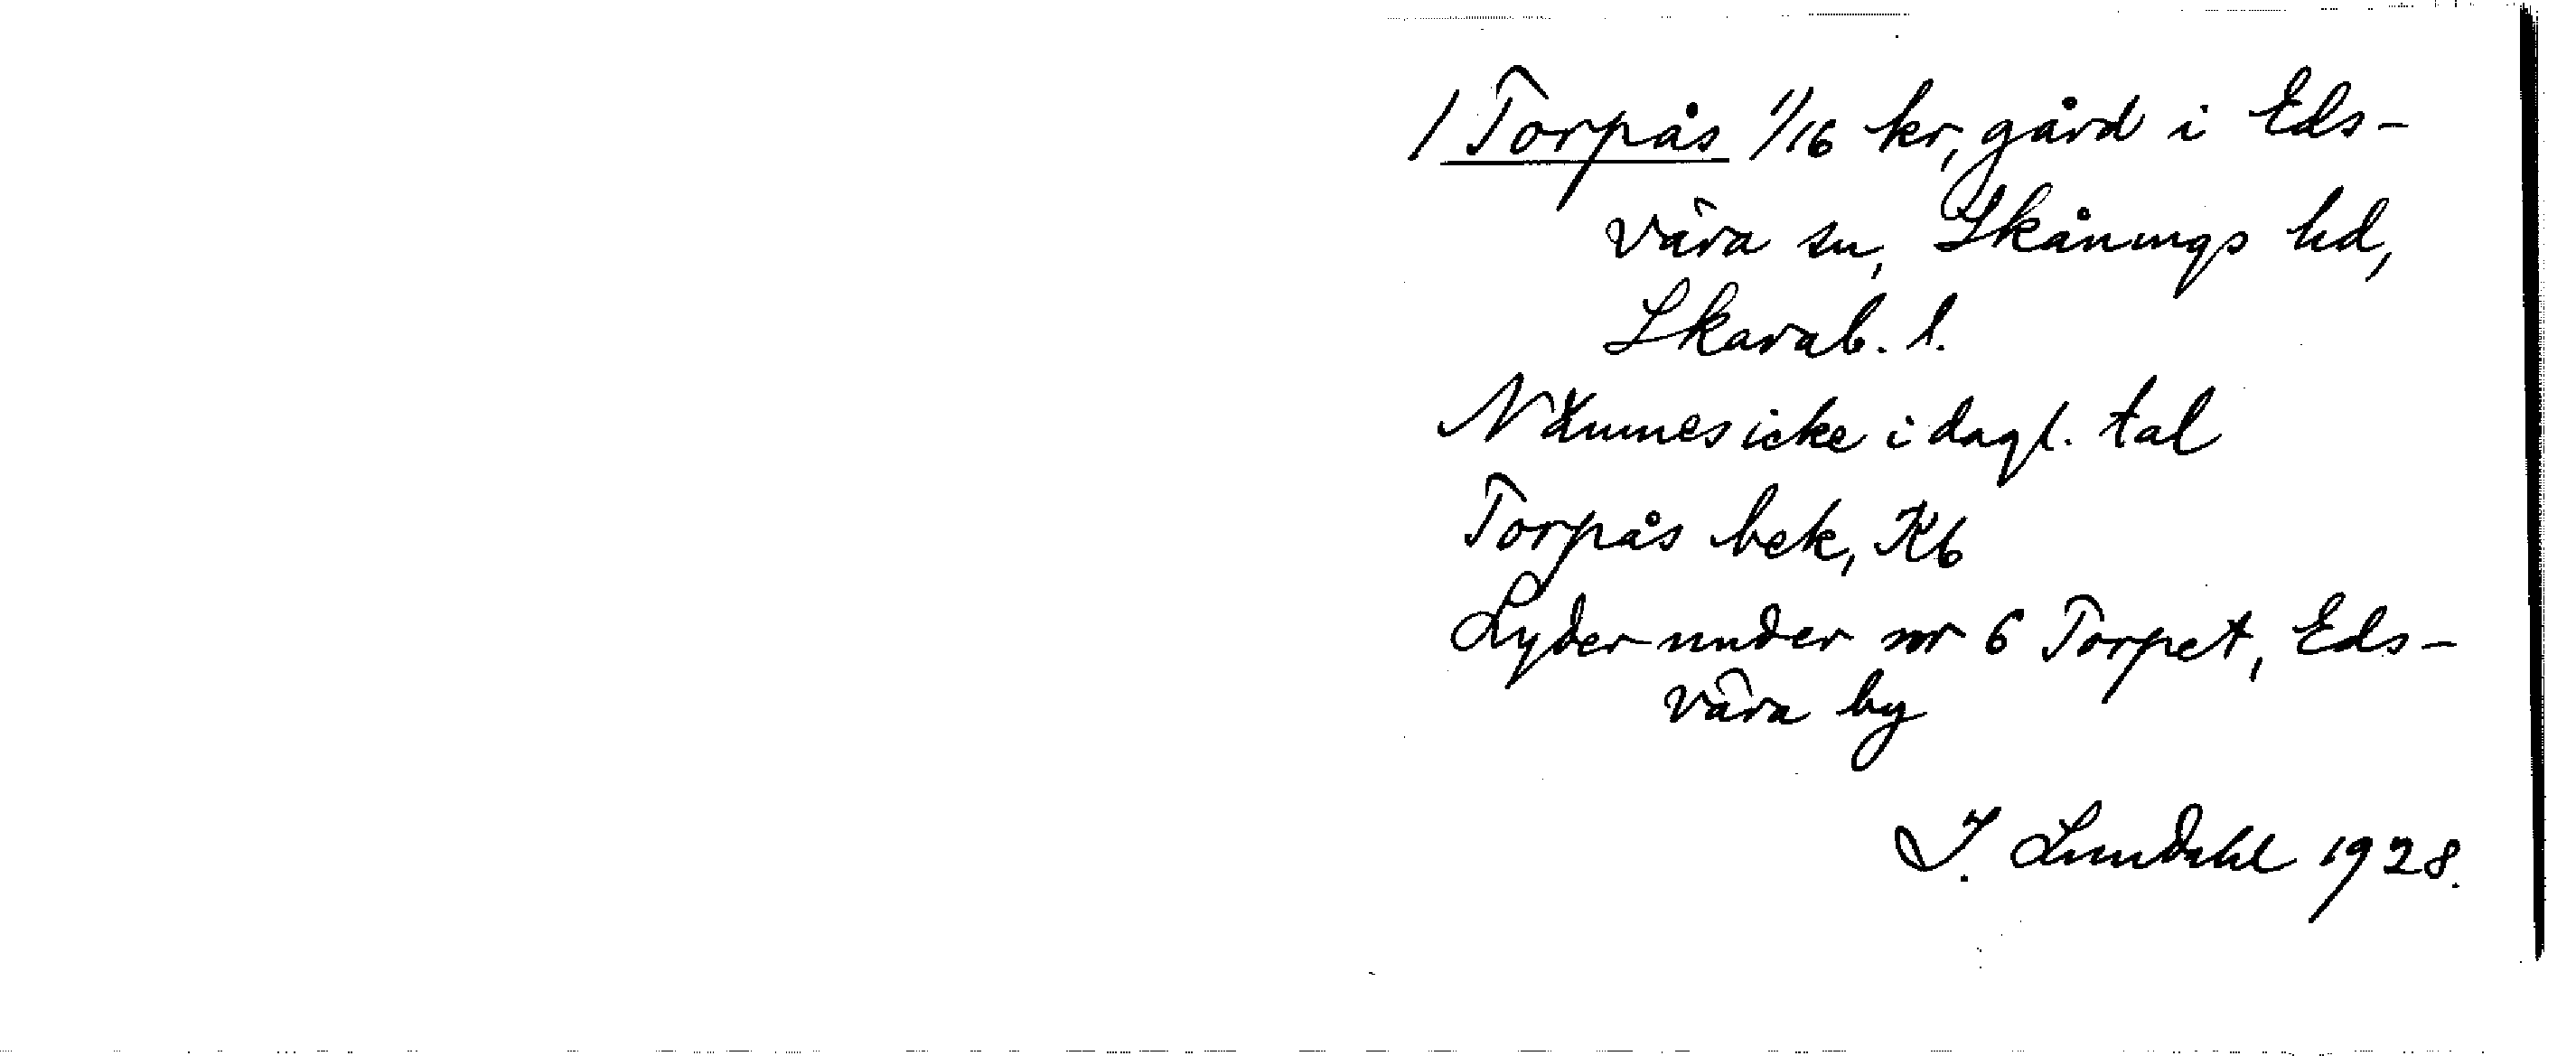 1 Torpås 1/16 kr, gård i Eds-
vära sn, Skånings hd,
Skarab. l.
Nämnes icke i dagl. tal
Torpås bek, Kb
Lyder under nr 6 Torpet, Eds-
vära by
I. Lundahl 1928.